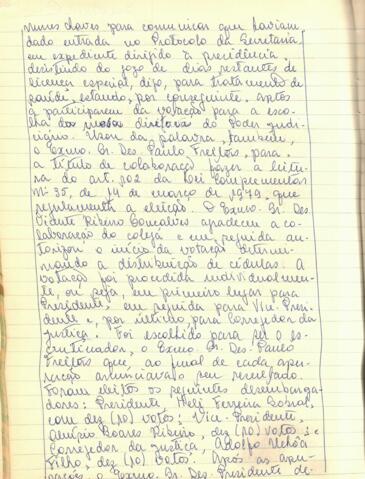 Nunes Chaves para comunicar que haviam
dado entrada no Protocolo da Secretaria,
em expediente dirigido à presidência
desistindo do gozo de dias restantes de
licença especial, digo, para tratamento de
saúde, estando, por conseguinte, aptos
a participarem da votação para a esco-
lha dos novos diretores do Poder Judi-
ciário. Usou da palavra, também,
o Exmo. Sr. Des. Paulo Freitas, para
a título de colaboração fazer a leitu-
ra do art. 102 da Lei Complementar
Nº 35, de 14 de março de 1979, que
regulamenta a eleição. O Exmo. Sr. Des.
Vicente Ribeiro Gonçalves agradeceu a co-
laboração do colega e em seguida au-
torizou o início da votação determi-
nando a distribuição de cédulas. A
votação foi procedida individualmen-
te, ou seja, em primeiro lugar para
Presidente, em seguida para Vice-Presi-
dente e, por último, para Corregedor da
Justiça. Foi escolhido para ser o es-
crutinador, o Exmo. Sr. Des. Paulo
Freitas que, ao final de cada apu-
ração anunciava seu resultado.
Foram eleitos os seguintes desembarga-
dores: Presidente, Heli Ferreira Sobral,
com dez (10) votos; Vice-Presidente,
Soares Ribeiro, dez (10) votos; e
Corregedor da Justiça, Adolfo
Filho, dez (10) votos. Após as apu-
rações o Exmo. Sr. Des. Presidente de-